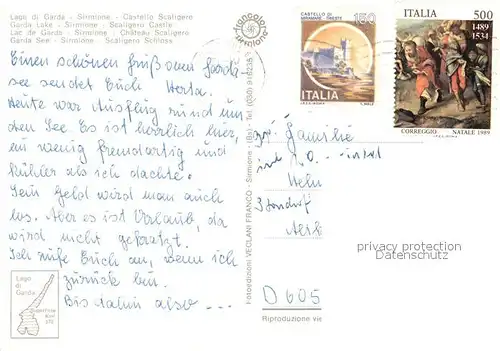 Lago di Garda - Sirmione - Castello Scaligero
Garda Lake - Sirmione - Scaligero Castle
Lac de Garda - Sirmione - Château Scaligero
Garda See - Sirmione - Scaligero Schloss
Einen schönen Gruß vom Garda-
see sendet Euch Herta.
Heute war Ausflug rund um
den See. Es ist herrlich hier,
ein wenig fremdartig und
kühler als ich dachte.
Sein Geld wird man auch
los. Aber es ist Urlaub, da
wird nicht gefragt.
Ich rufe Euch an, wenn ich
zurück bin.
Bis dahin also ...
Lago
di
Garda
Fotoedizioni VECLANI FRANCO - Sirmione - (Bs) - Tel. (030)
CASTELLO DI
MIRAMARE - TRIESTE
150
ITALIA
ITALIA 500
1489
1534
CORREGGIO NATALE 1989
Familie
D 605
privacy protection
Datenschutz
Riproduzione vie